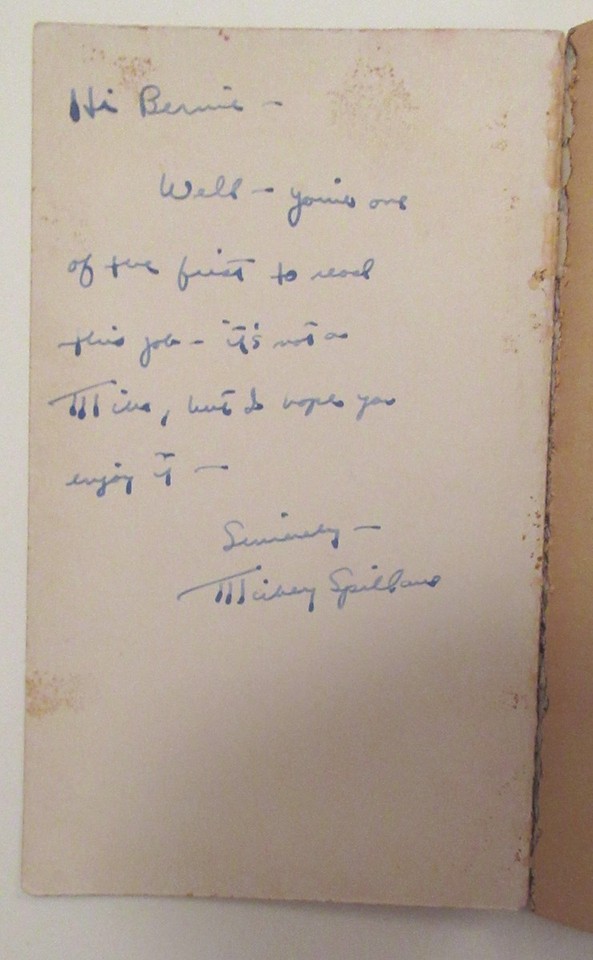 Hi Bernie -
Well - you're one
of the first to read
this job - it's not a
Mike, but I hope you
enjoy it -
Sincerely -
Mickey Spillane